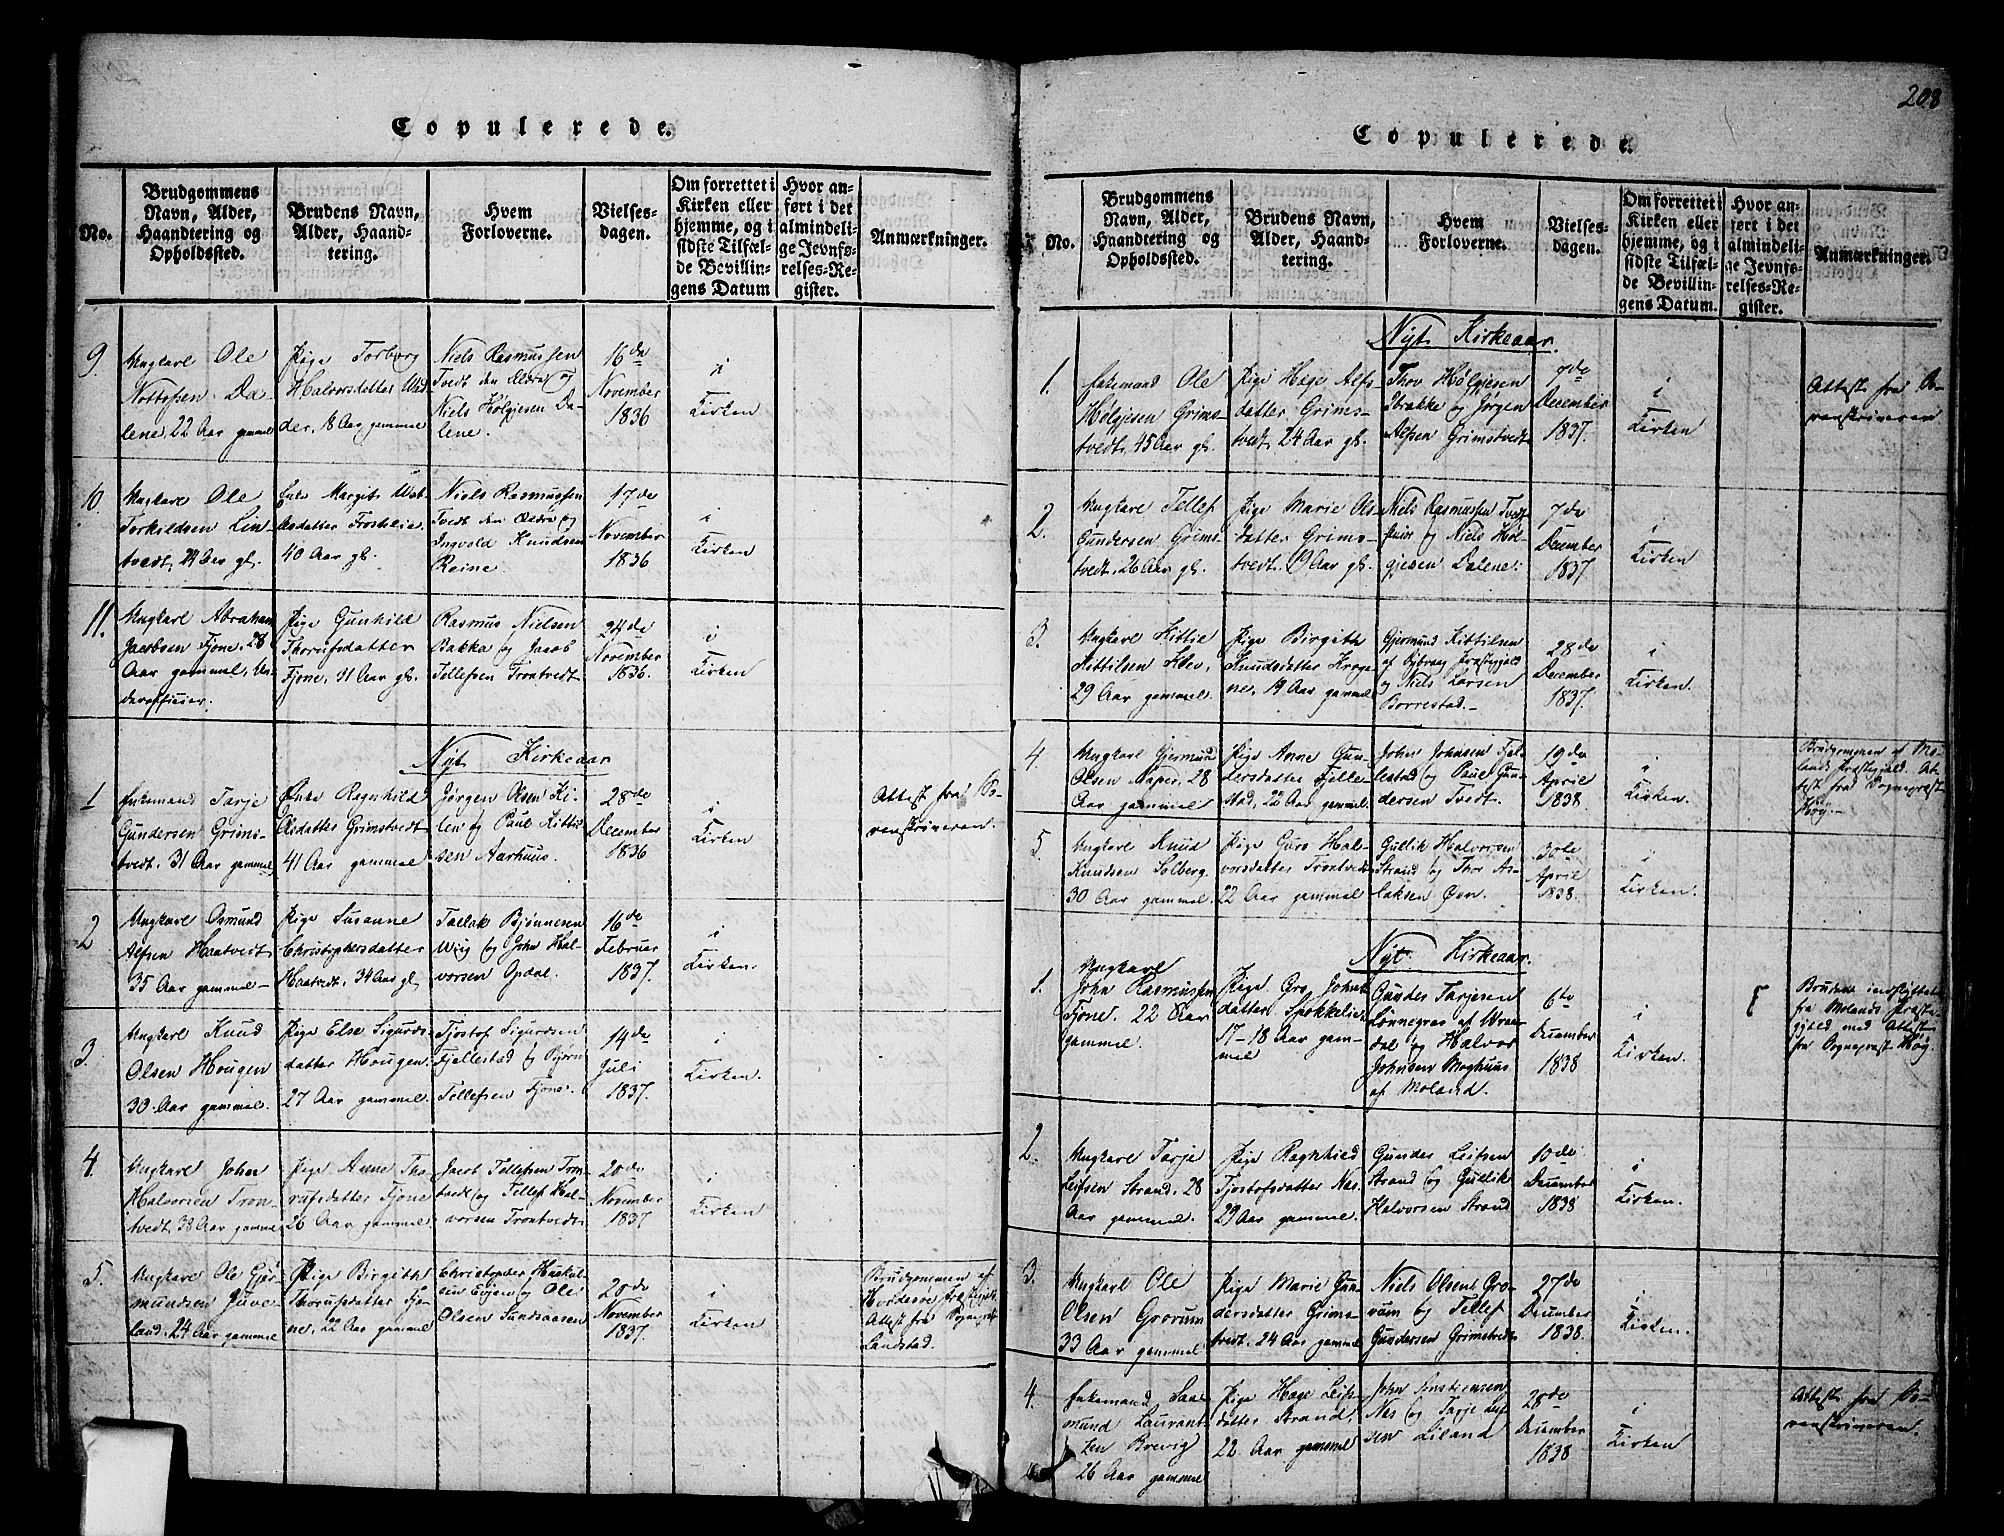 Copulerede.
No.
Brudgommens
Navn, Alder,
Haandtering og
Opholdssted.
Brudens Navn,
Alder, Haand-
tering.
Hvem
Forloverne.
Vielses-
dagen.
Om forrettet i
Kirken eller
hjemme, og i
sidste Tilfæl-
de Bevillin-
gens Datum
Hvor an-
ført i det
almindeli-
ge Jevnfø-
relses-Re-
gister.
Anmærkninger.
9.
Ungkarl Ole
Nottolsen Da-
lene, 22 Aar gammel
Pige Torborg
Halvorsdatter
18 Aar gammel
Niels Rasmussen
Tvedt den Ældre og
Niels Hølgjesen Da-
lene.
16de
November
1836
i
Kirken
10.
Ungkarl Ole
Torkildsen Lin-
tvedt, Aar gl.
Enke Margit
datter Trosteheia
40 Aar gl.
Niels Rasmussen
Tvedt den Ældre og
Ingvald Knudsen
Reine.
17de
November
1836
i
Kirken
11.
Ungkarl Abraham
Jacobsen Fjone, 28
Aar gammel, Un-
derofficier.
Pige Gunhild
Thorufsdatter
Fjone, 31 Aar gl.
Rasmus Nielsen
Bakka og Jacob
Tellefsen Trontvedt
24de
November
1836.
i
Kirken
Nyt Kirkeaar
1
Enkemand Tarje
Gundersen Grims-
tvedt. 31 Aar gammel
Enke Ragnhild
Olsdatter Grimstvedt
41 Aar gammel
Jørgen Olsen Ki-
len og Paul Kittil-
sen Aarhuus.
28de
December
1836
i
Kirken
Attest fra So-
renskriveren.
2
Ungkarl Osmund
Alfsen Haatvedt
35 Aar gammel
Pige Susanne
Christophersdatter
Haatvedt, 34 Aar gl
Tallak Bjønnesen
Wiig og John Hal-
vorsen Opdal.
16de
Februar
1837.
i
Kirken.
3.
Ungkarl Knud
Olsen Hougen
30 Aar gammel.
Pige Else Sigurds-
datter Hougen.
27 Aar gammel
Tjostof Sigurdsen
Fjellestad og Bjørn
Tellefsen Fjone.
14de
Juli
1837.
i
Kirken.
4.
Ungkarl John
Halvorsen Tron-
tvedt. 38 Aar gammel
Pige Anne Tho-
rufsdatter Fjone
26 Aar gammel
Jacob Tellefsen Tron-
tvedt og Tellef Hal-
vorsen Trontvedt
20de
November
1837
i
Kirken
5.
Ungkarl Ole Gjer-
mundsen Juve-
land. 24 Aar gammel
Pige Birgith
Thorufsdatter Fjo-
ne, 22 Aar gammel
Christopher Haakul-
sen Eigen og Ole
Olsen Sundsaasen
20de
November
1837.
i
Kirken
Brudgommen af
Hviddesøe Præstegield
Attest fra Sognepræst
Landstad.
208
Copulerede.
No.
Brudgommens
Navn, Alder,
Haandtering og
Opholdssted.
Brudens Navn,
Alder, Haand-
tering.
Hvem
Forloverne.
Vielses-
dagen.
Om forrettet i
Kirken eller
hjemme, og i
sidste Tilfæl-
de Bevillin-
gens Datum.
Hvor an-
ført i det
almindeli-
ge Jevnfø-
relses-Re-
gister.
Anmærkninger.
Nyt Kirkeaar.
1.
Enkemand Ole
Hølgjesen Grims-
tvedt, 45 Aar gl.
Pige Hage Alfs-
datter Grims-
tvedt, 24 Aar gl.
Thov Hølgjesen
Brække og Jørgen
Alfsen Grimstvedt
7de
December
1837.
i
Kirken
Attest fra So-
renskriveren
2.
Ungkarl Tellef
Gundersen Grims-
tvedt. 26 Aar gl.
Pige Marie Ols-
datter Grims-
tvedt. 19 Aar gl.
Niels Rasmussen Tvedt
junior og Niels Høl-
gjesen Dalene.
7de
December
1837.
i
Kirken
3.
Ungkarl Kittil
Kittilsen Klev,
29 Aar gammel.
Pige Birgith
Knudsdatter Kroge-
ne, 19 Aar gammel
Gjermund Kittilsen
af Præstegjeld
og Niels Larsen
Borrestad.
28de
December
1837.
i
Kirken.
4.
Ungkarl Gjermund
Olsen Naper, 28
Aar gammel
Pige Anne Gun-
dersdatter Fjelle-
stad, 22 Aar gammel
John Johnsen Fjel-
lestad og Paul Gun-
dersen Tvedt.
19de
April
1838.
i
Kirken.
Brudgommen af Mo-
lands Præstegjeld. At-
test fra Sognepræst
Høy.
5
Ungkarl Knud
Knudsen Solberg.
30 Aar gammel.
Pige Guro Hal-
vorsdatter Trontvedt
22 Aar gammel
Gullik Halvorsen
Strand og Thor As-
laksen Øen.
30de
April
1838.
i
Kirken.
Nyt Kirkeaar.
1.
Ungkarl
John Rasmussen
Fjone. 22 Aar
gammel.
Pige Gro Johns-
datter Spokkelie
17-18 Aar gam-
mel
Gunder Tarjesen
Lønnegrav af Wraa-
dal og Halvor
Johnsen Moghuus
af Moland.
6te
December
1838
i
Kirken.
Bruden indflyttet
fra Molands Præste-
gjeld med Attest
fra Sognepræst Høy.
2.
Ungkarl Tarje
Leifsen Strand. 28
Aar gammel.
Pige Ragnhild
Tjostofsdatter Næs.
29 Aar gammel.
Gunder Leifsen
Strand og Gullik
Halvorsen Strand
10de
December
1838
i
Kirken.
3.
Ungkarl Ole
Olsen Grovum
33 Aar gammel
Pige Marie Gun-
dersdatter Grims-
tvedt. 24 Aar gammel
Niels Olsen Gro-
vum og Tellef
Gundersen Grimstvedt
27de
December
1838.
i
Kirken.
4.
Enkemand Saa-
mund Laurant-
zen Brevig
26 Aar gammel
Pige Hage Leifs-
datter Strand.
22 Aar gammel
John Anstensen
Næs og Tarje Leif-
sen Liland
28de
December
1838
i
Kirken
Attest fra So-
renskriveren.